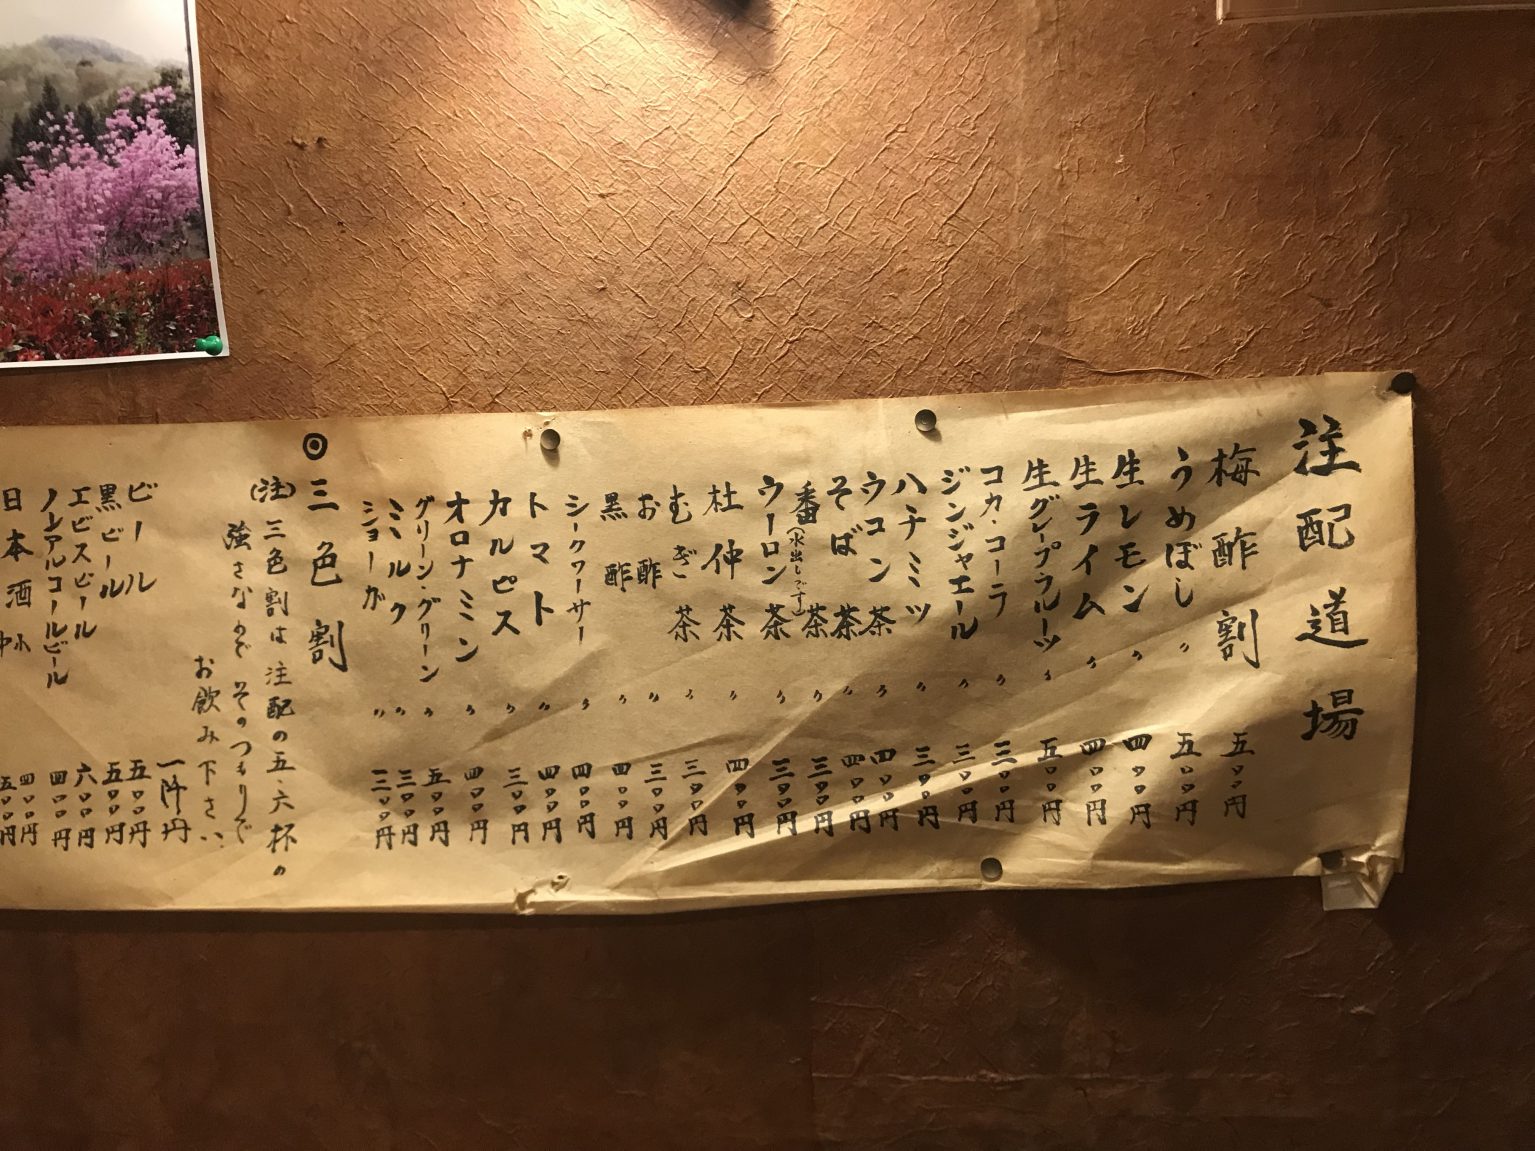 注配道場
梅酢割 五〇〇円
うめぼし 〃 五〇〇円
生レモン 〃 四〇〇円
生ライム 〃 四〇〇円
生グレープフルーツ 〃 五〇〇円
コカ・コーラ 〃 三〇〇円
ジンジャエール 〃 三〇〇円
ハチミツ 〃 三〇〇円
ウコン茶 〃 四〇〇円
そば茶 〃 四〇〇円
番茶(水出しです) 〃 三〇〇円
ウーロン茶 〃 三〇〇円
杜仲茶 〃 四〇〇円
むぎ茶 〃 三〇〇円
お酢 〃 三〇〇円
黒酢 〃 四〇〇円
シークワーサー 〃 四〇〇円
トマト 〃 四〇〇円
カルピス 〃 三〇〇円
オロナミン 〃 四〇〇円
グリーン・グリーン 〃 五〇〇円
ミルク 〃 三〇〇円
ショーガ 〃 三〇〇円
◎三色割
(注)三色割は注配の五、六杯の
強さなので そのつもりで
お飲み下さい、
一阡円
ビール 五〇〇円
黒ビール 五〇〇円
エビスビール 六〇〇円
ノンアルコールビール 四〇〇円
日本酒 小 四〇〇円
中 五〇〇円